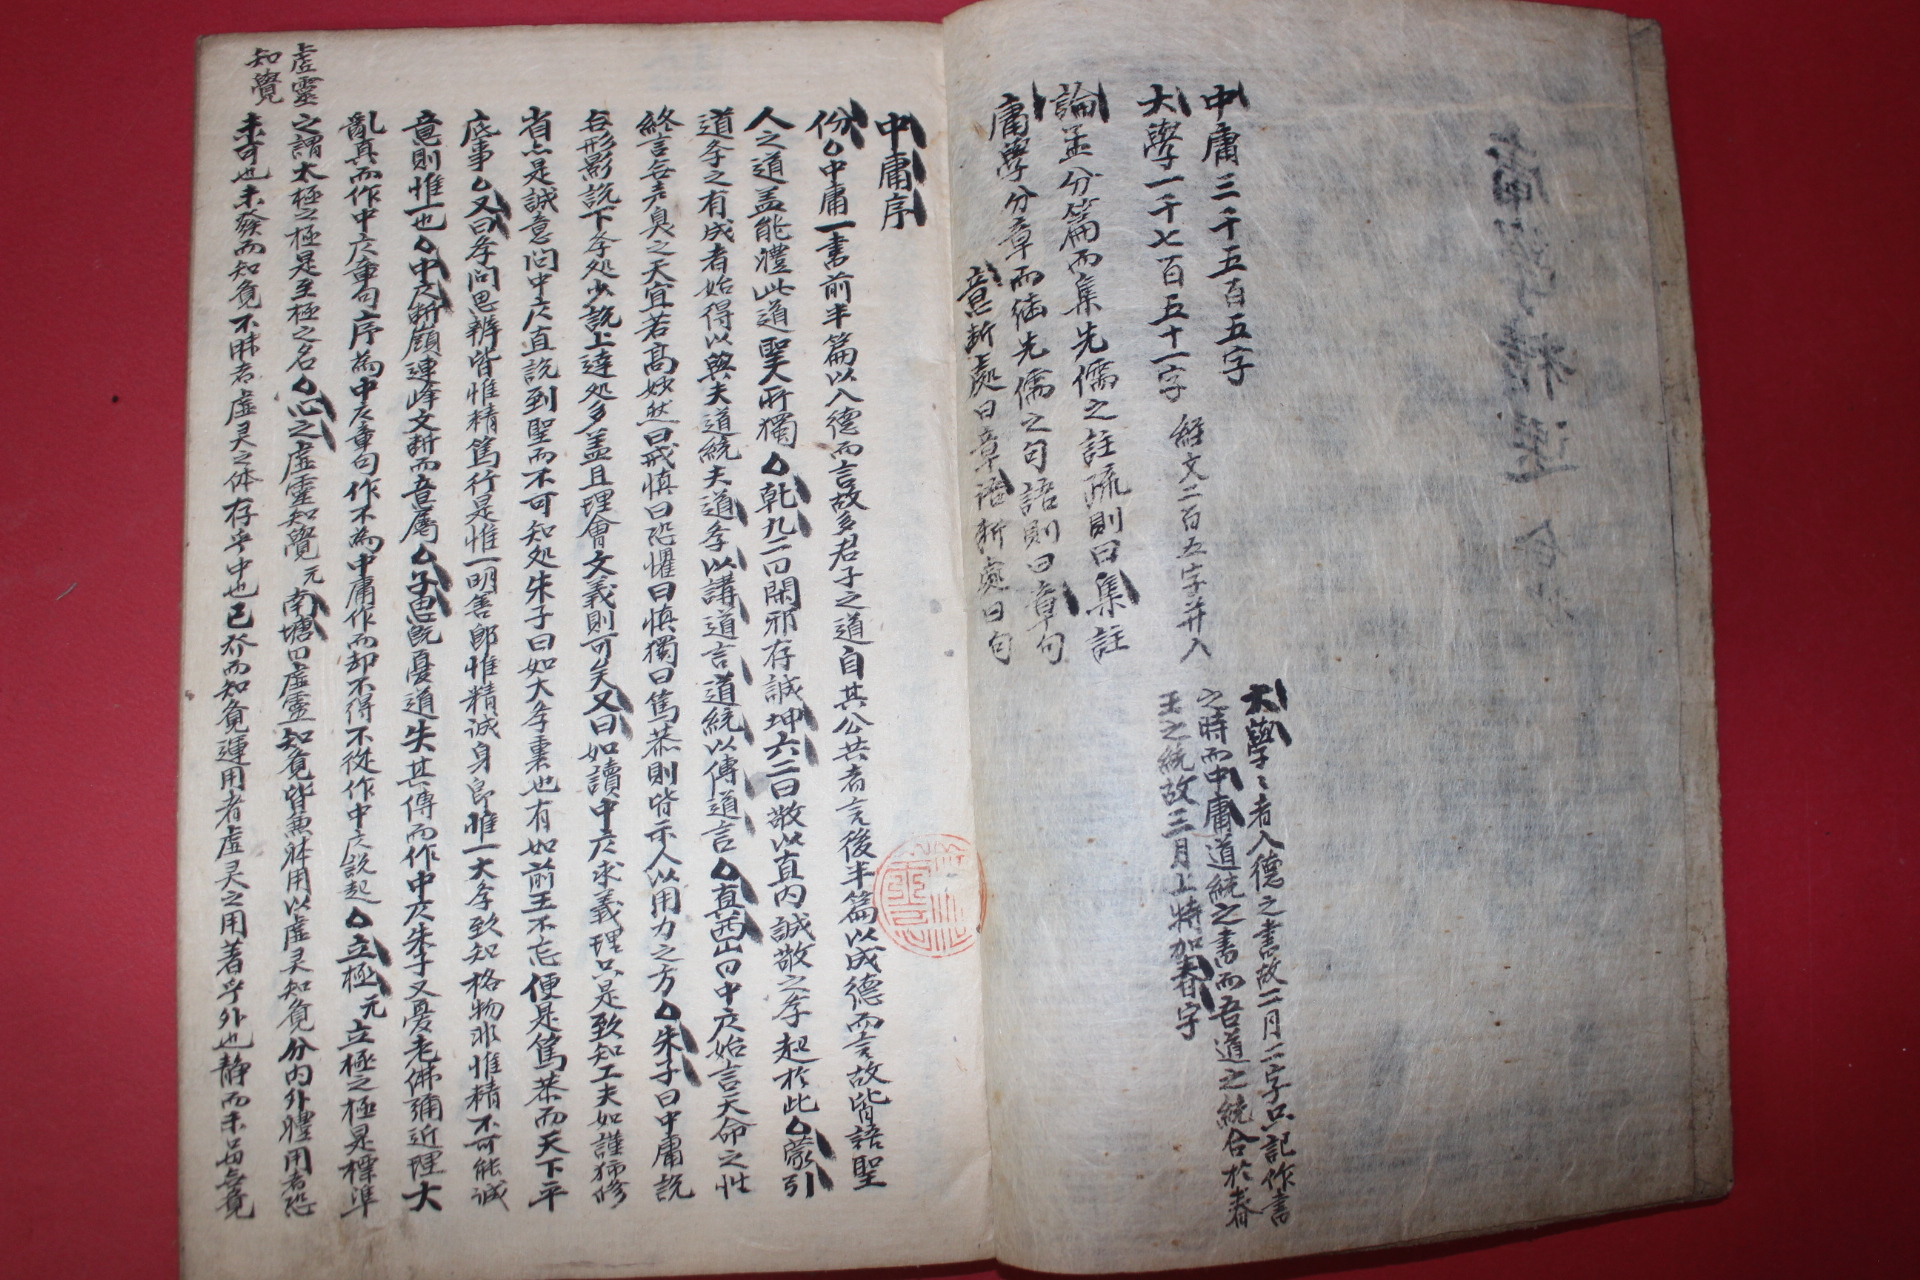 中庸三千五百五字
大學一千七百五十一字 経文二百五字并入
論孟分篇而集先儒之註疏則曰集註
庸學分章而 先儒之句語則曰章句
意斷處曰章語斷處曰句
大學〻者入德之書故二月二字只記作書
之時而中庸道統之書而吾道之統合於春
王之統故三月上特加春字
中庸序
份△中庸一書前半篇以入德而言故多君子之道自其公共者言後半篇以成德而言故皆語聖
人之道盖能體此道聖人所獨△乾九二曰閑邪存誠坤六二曰敬以直內誠敬之孝起於此△蒙引
道孝之有成者始得以與夫道統夫道孝以講道言道統以傳道言△真西山曰中庸始言天命之性
終言無声臭之天宜若高妙然曰戒慎曰恐懼曰慎獨曰篤恭則皆示人以用力之方△朱子曰中庸說
無形影說下孝処少說上達処多盖且理會文義則可矣又曰如讀中庸求義理只是致知工夫如謹獨修
省亦是誠意問中庸直說到聖而不可知処朱子曰如大孝裏也有如前王不忘便是篤恭而天下平
底事△又曰孝問思辨皆惟精篤行是惟一明善即惟精誠身即惟一大孝致知格物非惟精不可能誠
意則惟一也△中庸斷嶺連峰文斷而意屬△子思既憂道失其傳而作中庸朱子又憂老佛彌近理大
亂真而作中庸章句序為中庸章句作不為中庸作而却不得不從作中庸說起△立極元立極之極是標準
之謂太極之極是至極之名△心之虛靈知覺元南塘曰虛靈知覓皆無體用以虛灵知覓分內外體用者恐
未可也未發而知覓不昧者虛灵之体存乎中也已發而知覓運用者虛灵之用著乎外也靜而未 無覓
虛靈
知覺